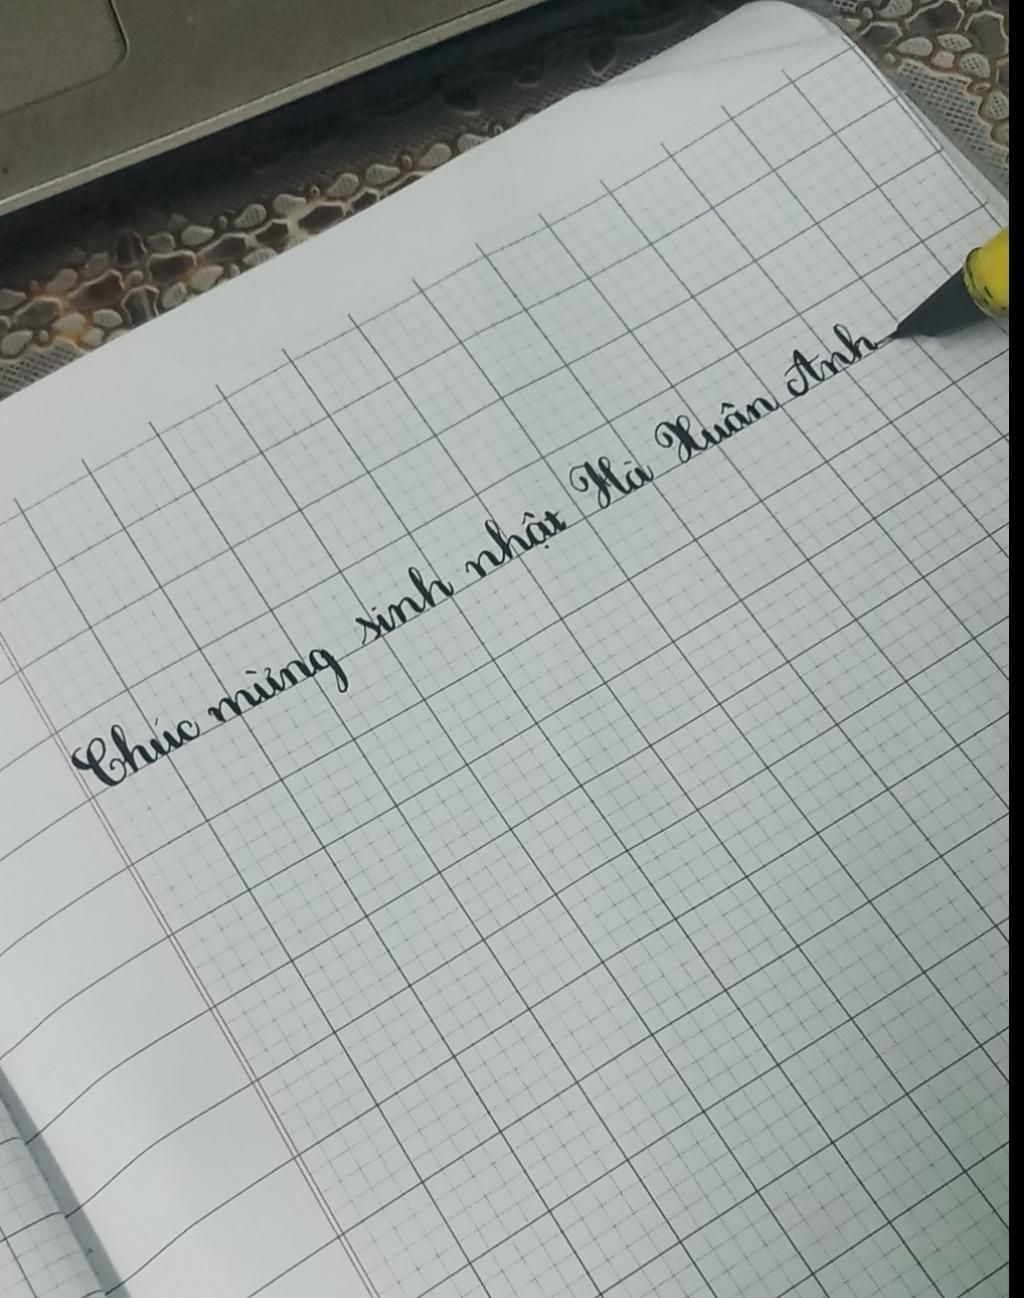 Chúc mừng sinh nhật Hà Xuân Anh